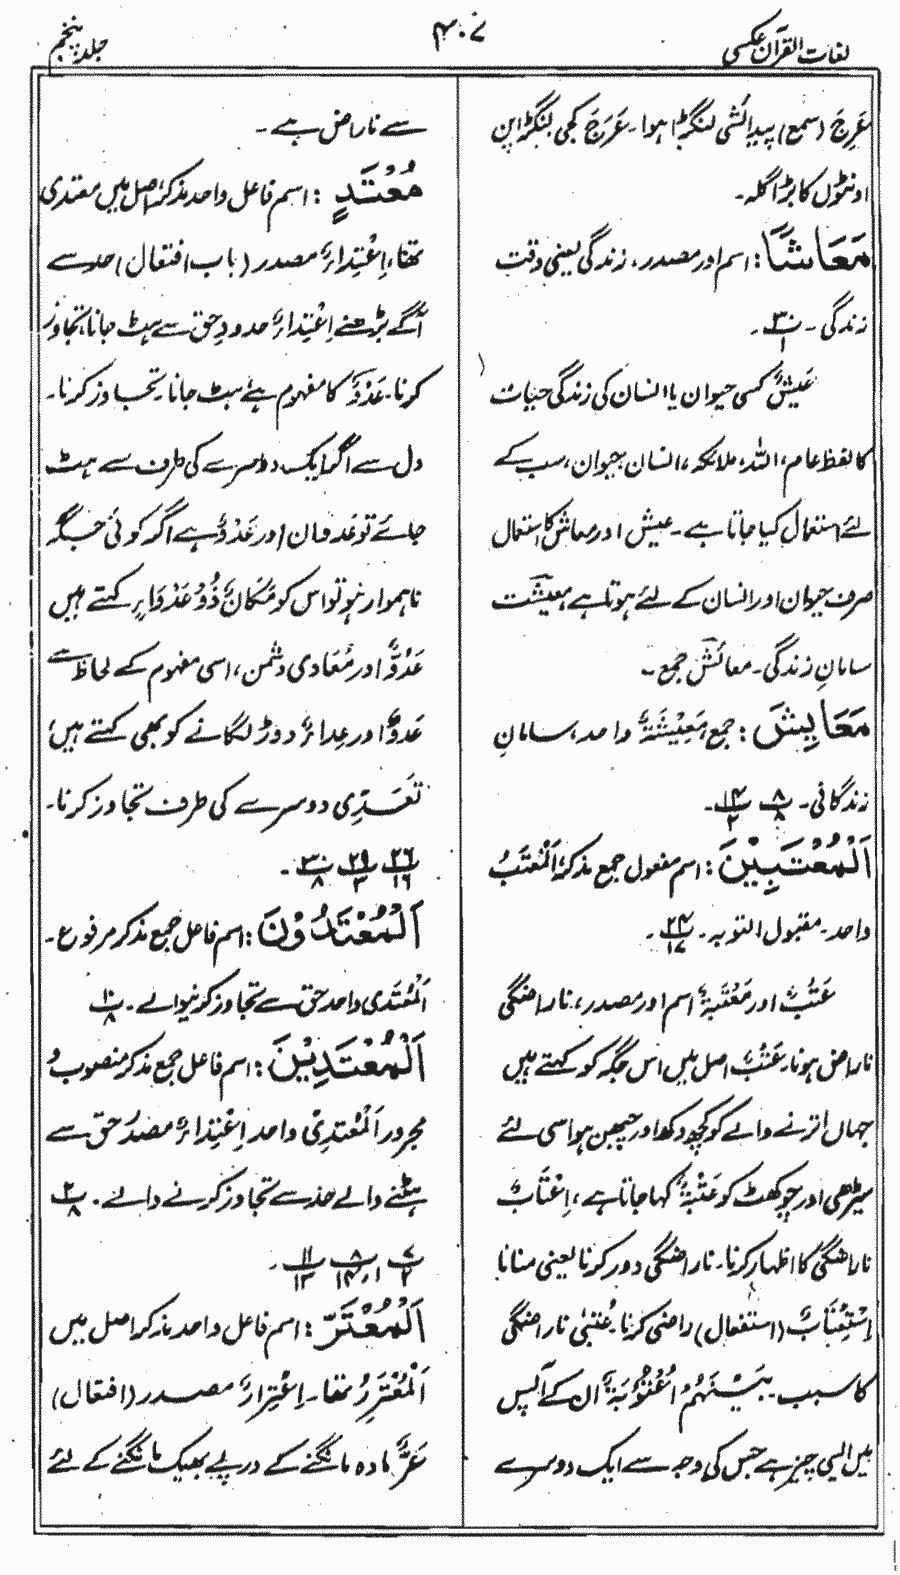 لغات القرآن عکسی
۴۰۷
جلد پنجم
عَرِجَ (سمع) پیدائشی لنگڑا ہوا۔ عَرَجَ کجی لنگڑاپن
اونٹوں کا بڑا گلہ۔
مَعَاشًا: اسم اور مصدر، زندگی یعنی وقت
زندگی۔ پ۳۰/۱۔
عَیْشٌ کسی حیوان یا انسان کی زندگی حیات
کا لفظ عام، اللہ، ملائکہ، انسان حیوان، سب کے
لئے استعمال کیا جاتا ہے۔ عیش اور معاش کا استعمال
صرف حیوان اور انسان کے لئے ہوتا ہے معیشت
سامانِ زندگی۔ معائش جمع۔
مَعَایِشَ: جمع مَعِیْشَۃٌ واحد، سامانِ
زندگانی۔ پ۸/۸ پ۱۴/۲۔
اَلْمُعْتَبِیْنَ: اسم مفعول جمع مذکر اَلْمُعْتَبُ
واحد۔ مقبول التوبہ۔ پ۲۴/۱۷۔
عَتْبٌ اور مَعْتَبَۃٌ اسم اور مصدر، ناراضگی
ناراض ہونا۔ عَتْبٌ اصل میں اس جگہ کو کہتے ہیں
جہاں اترنے والے کو کچھ دکھ اور چبھن ہو اسی لئے
سیڑھی اور چوکھٹ کو عَتَبَۃٌ کہا جاتا ہے، اِعْتَابٌ
ناراضگی کا اظہار کرنا۔ ناراضگی دور کرنا یعنی منانا
اِسْتِعْتَابٌ (استفعال) راضی کرنا۔ عُتبیٰ ناراضگی
کا سبب۔ بَیْنَہُمْ اُعْتُوْبَۃٌ ان کے آپس
میں ایسی چیز ہے جس کی وجہ سے ایک دوسرے
سے ناراض ہے۔
مُعْتَدٍ: اسم فاعل واحد مذکر، اصل میں معتدی
تھا، اِعْتِدَاءٌ مصدر (باب افتعال) حد سے
آگے بڑھنے اِعْتِدَاءٌ حدودِ حق سے ہٹ جانا، تجاوز
کرنا۔ عَدْوٌ کا مفہوم ہے ہٹ جانا۔ تجاوز کرنا۔
دل سے اگر ایک دوسرے کی طرف سے ہٹ
جائے تو عدوان اور عَدُوٌّ ہے اگر کوئی جگہ
ناہموار ہو تو اس کو مَکَانٌ ذُوْ عَدْوَاءٍ کہتے ہیں
عَدُوٌّ اور مُعَادی دشمن، اسی مفہوم کے لحاظ سے
عَدْوٌ اور عِداءٌ دوڑ لگانے کو بھی کہتے ہیں،
تَعَدِّی دوسرے کی طرف تجاوز کرنا۔
پ۲۶/۱۶ پ۲۹/۳ پ۳۰/۸۔
اَلْمُعْتَدُوْنَ: اسم فاعل جمع مذکر مرفوع۔
اَلْمُعْتَدِی واحد حق سے تجاوز کرنیوالے۔ پ۱۰/۸
اَلْمُعْتَدِیْنَ: اسم فاعل جمع مذکر منصوب و
مجرور اَلْمُعْتَدِیْ واحد اِعْتِدَاءٌ مصدر حق سے
ہٹنے والے حد سے تجاوز کرنے والے۔ پ۲/۸
پ۷/۲ پ۸/۱۴،۱ پ۱۱/۱۳۔
اَلْمُعْتَرَّ: اسم فاعل واحد مذکر اصل میں
اَلْمُعْتَرِرُ تھا۔ اِعْتِرَارٌ مصدر (افتعال)
عَرٌّ مادہ مانگنے کے درپے بھیک مانگنے کے لئے